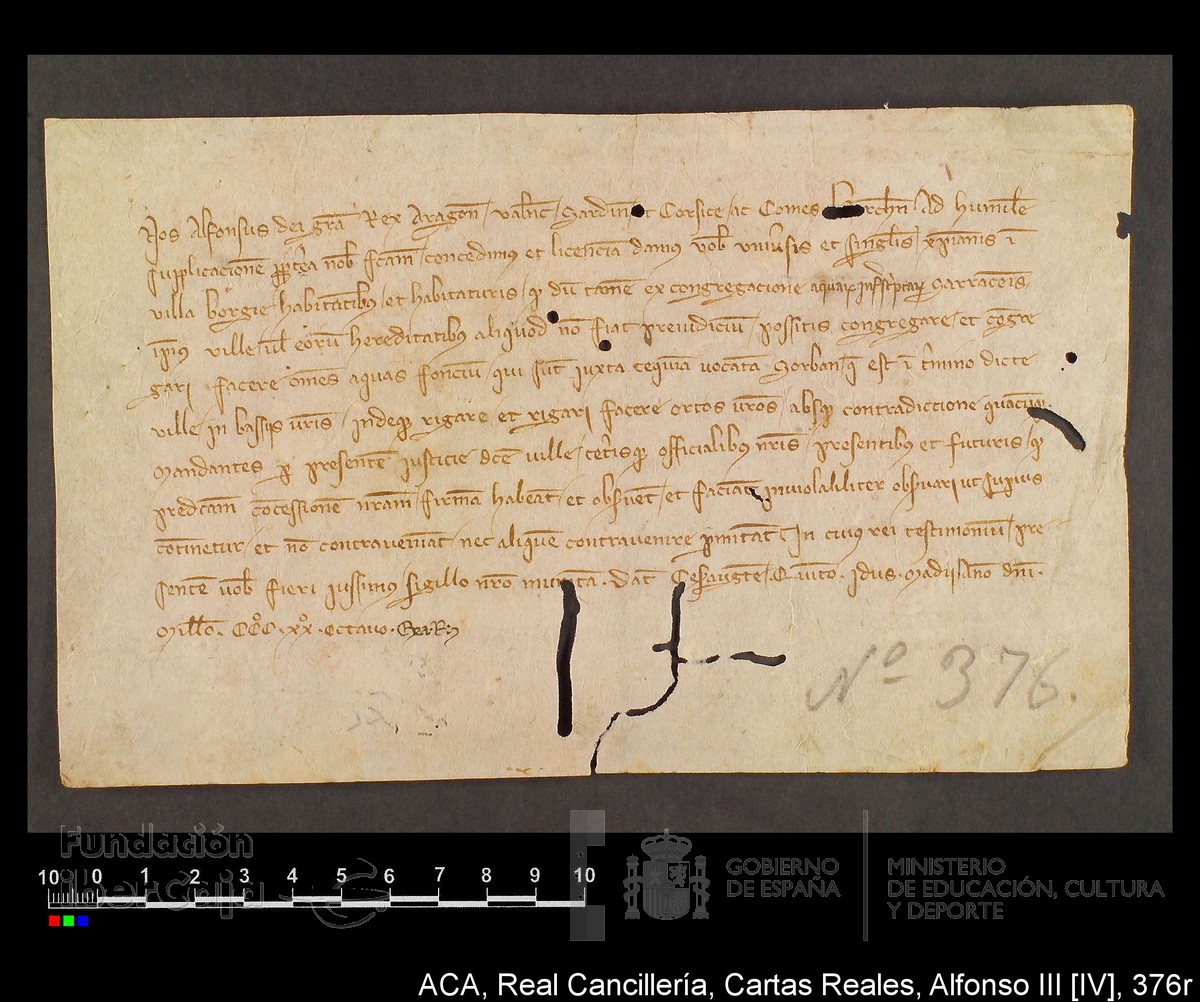 Nos Alfonsus dei gr̄a Rex Aragon̄ / valn̄c / Sardin̄ et Corsice / ac Comes Barchn̄ Ad humilē
supplicacionē ꝓpt̄ea nob̄ fc̄am / concedimꝰ et licencīa damꝰ vob̄ vniūsis et singl̄is / xp̄ianis ī
villa borgie habitātibꝰ / et habitaturis / qᷓ dū tamē ex congregacione aquaꝝ infrasc̄ptaꝝ sarracenis
ip̄iꝰ ville ul̄ eoꝝ hereditatibꝰ aliquod nō fiat preiudiciū / possitis congregare / et cōgre
gari facere om̄es aquas fonciū / qui sūt iuxta cequīa vocatā Sorban / q̄ est ī t̄mino dicte
ville in bassijs vr̄is / indeqꝫ rigare et rigari facere ortos vr̄os / absqꝫ contradiccione quacūqꝫ.
Mandantes ꝑ presentē iusticie dc̄e ville / cet̄isqꝫ officialibꝰ nr̄is / presentibꝰ et futuris / qᷓ
predc̄am cōcessionē nr̄am / firmā habeāt / et obsūet / et faciāt inuiolabiliter obsūari ut supius
cōtinetur / et nō contraueniāt / nec aliquē contrauenire ꝑmittāt In cuius rei testimoniū / pre
sentē uob̄ fieri iussimꝰ sigillo nr̄o munitā. Dat̄ Cesaugust̄e / Quīto. Idus. Madii Āno dn̄i.
Mill̄o. CCCº. xxº. octauo.
Nº 376.
Fundación
iberCaja
10 0 1 2 3 4 5 6 7 8 9 10
GOBIERNO
DE ESPAÑA
MINISTERIO
DE EDUCACIÓN, CULTURA
Y DEPORTE
ACA, Real Cancillería, Cartas Reales, Alfonso III [IV], 376r